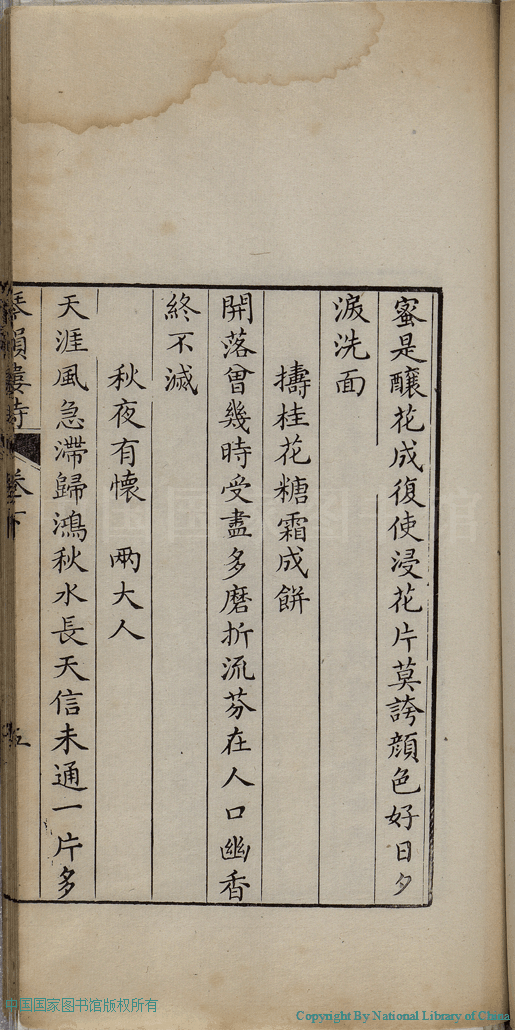 蜜是釀花成復使浸花片莫誇顏色好日夕
淚洗面
擣桂花糖霜成餅
開落曾幾時受盡多磨折流芬在人口幽香
終不滅
秋夜有懷 兩大人
天涯風急滯歸鴻秋水長天信未通一片多
琴韻樓詩 卷下
五
中国国家图书馆版权所有
Copyright By National Library of China